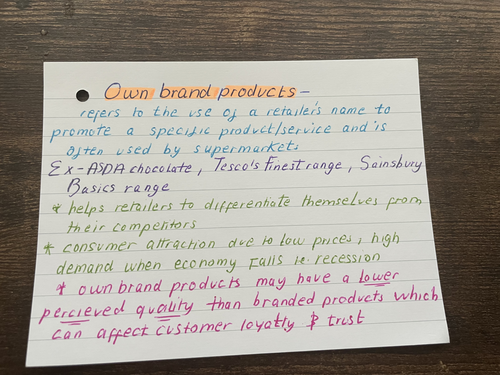 Own brand products -
refers to the use of a retailer's name to
promote a specific product/service and is
often used by supermarkets
Ex - ASDA chocolate, Tesco's Finest range, Sainsbury
Basics range
* helps retailers to differentiate themselves from
their competitors
* consumer attraction due to low prices, high
demand when economy falls to recession
* own brand products may have a lower
percieved quality than branded products which
can affect customer loyalty & trust